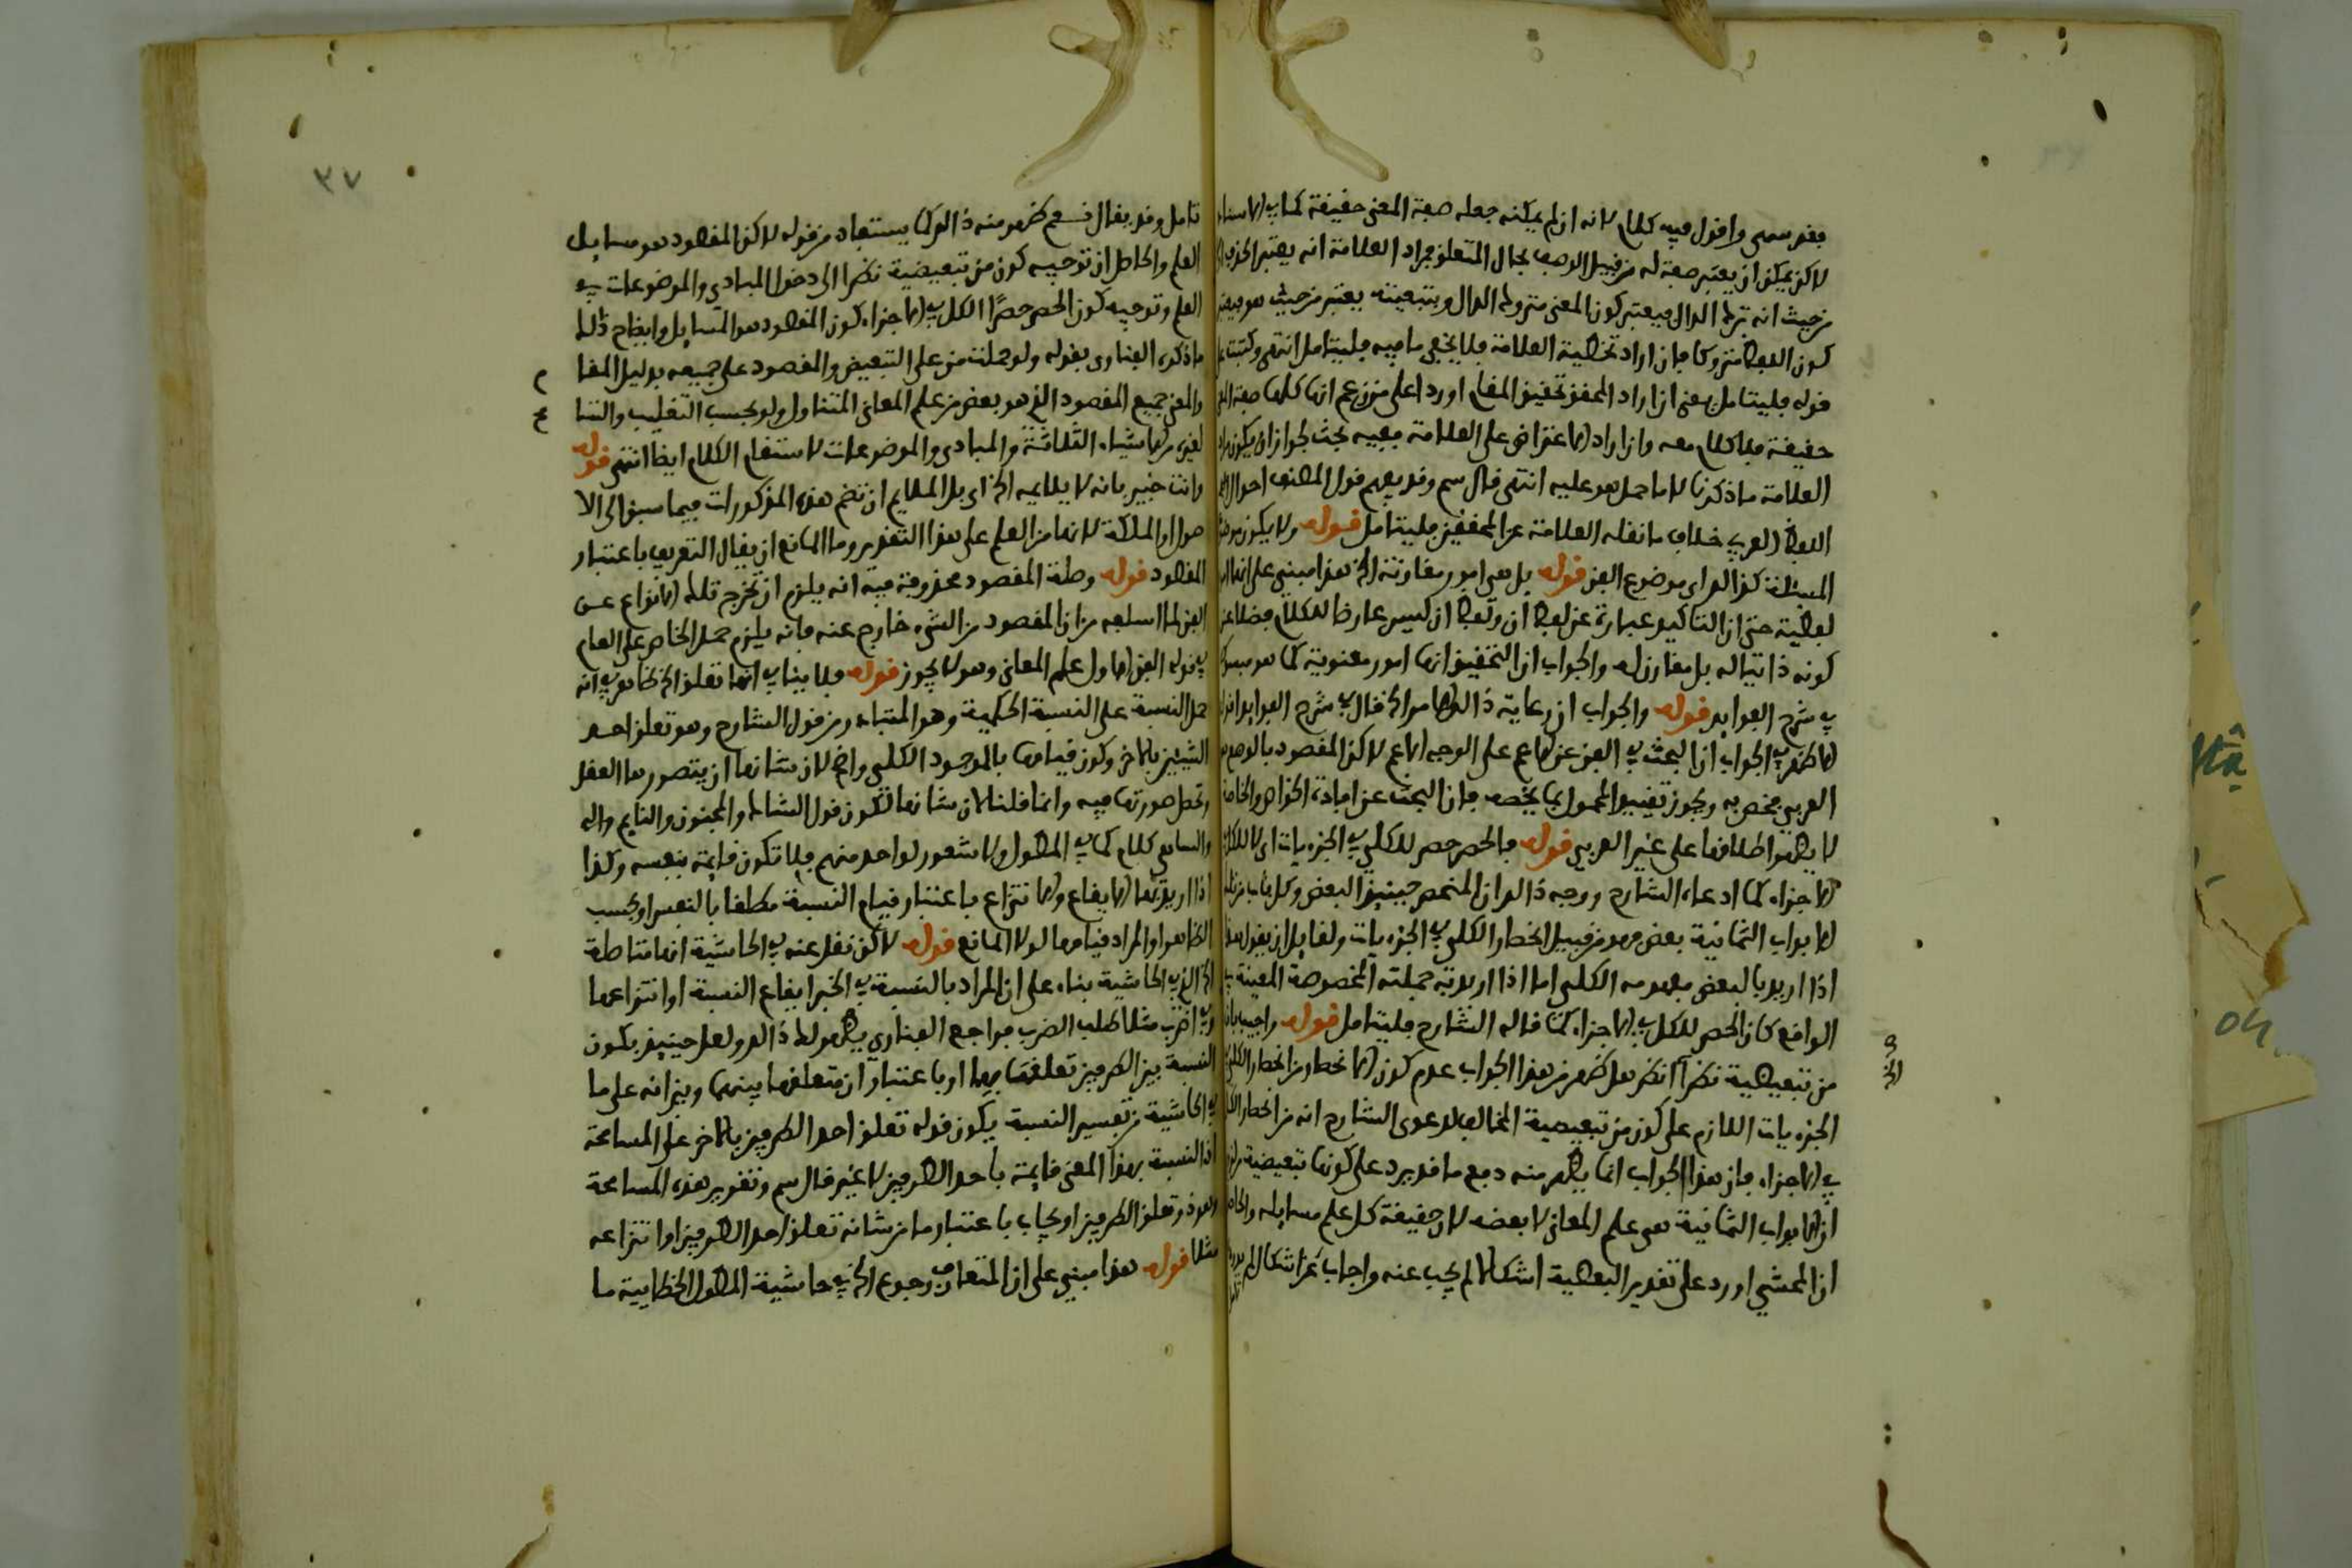 فقد سهى واقول فيه كلام لانه ان لم يمكنه جعله صفة المعنى حقيقة كما في الاسناد
لاكن يمكن ان يعتبر صفة له من قبيل الوصف بحال المتعلق فمراد العلامة انه يعتبر الحذف
من حيث انه ترك الدال فيعتبر كون المعنى متروك الدال وبتبعيته يعتبر من حيث هو
كون اللفظ متروكا فان اراد تخطية العلامة فلا يخفى ما فيه فليتامل انتهى وكتبت
قوله فليتامل يعنى ان اراد المحقق تحقيق المقام اورد اعلى من زعم انها كلها صفة
حقيقة فلا كلام معه وان اراد الاعتراض على العلامة ففيه بحث لجواز ان يكون مراد
العلامة ما ذكرنا لا ما حمل هو عليه انتهى قال سم وقد يفهم قول المصنف احوال
اللفظ العربي خلاف ما نقله العلامة عن المحققين فليتامل قوله ولا يكون
المسئلة كذا الدراى موضوع الفن قوله بل هي امور مقارنة الخ هذا مبني على
لفظية حتى ان التاكيد عبارة عن لفظ ان ولفظ ان ليس عارضا للكلام فضلا عن
كونه ذاتيا له بل مقارن له والجواب ان التحقيق انها امور معنوية كما هو
في شرح الفوايد قوله والجواب ان رعاية ذالك الامر الخ قال في شرح الفوايد
الاظهر في الجواب ان البحث في الفن عن الاعم على الوجه الاعم لاكن المقصود بالوصف
العربي مختص به ويجوز تقييد المحمول بما يخصه فان البحث عن افادة الخواص والخاصة
لا يصح اطلاقها على غير العربي قوله فالحصر حصر للكلي في الجزءيات اى لا للكل
الاجزاء كما ادعاه الشارح ووجه ذالك ان المنحصر حينيذ البعض وكل باب من تلك
الابواب الثمانية بعض فهو من قبيل انحصار الكلي في الجزءيات ولقايل ان يقول هذا
اذا اريد بالبعض مفهومه الكلى اما اذا اريد به جملته المخصوصة المعينة في
الواقع كان الحصر للكل في الاجزاء كما قاله الشارح فليتامل قوله واجيب بان
من تبعيضية نظرا انظر هل ظهر من هذا الجواب عدم كون الانحصار من انحصار الكلي
الجزءيات اللازم على كون من تبعيضية المخالف لدعوى الشارح انه من انحصار الكل
في الاجزاء فان هذا الجواب انما يظهر منه دفع ما قد يرد على كونها تبعيضية
ان الابواب الثمانية هى علم المعانى لا بعضه لان حقيقة كل علم مسايله والحاصل
ان المحشي اورد على تقدير التبعيضية اشكالا لم يجب عنه واجاب عن اشكال لم يورده
٣٧
تامل وقد يقال نعم ظهر منه ذالك كما يستفاد من قوله لاكن المقصود هو مسايل
العلم والحاصل ان توجيه كون من تبعيضية نظرا الى دخول المبادي والموضوعات في
العلم وتوجيه كون الحصر حصرًا للكل في الاجزاء كون المقصود هو المسايل وايضاح ذلك
ما ذكره الفناوى بقوله ولو حملت من على التبعيض والمقصود على جميعه بدليل المقا
والمعنى جميع المقصود الذى هو بعض من علم المعاني المتناول ولو بحسب التغليب والتنا
لغيره من الاشياء الثلاثة والمبادى والموضوعات لاستقام الكلام ايضا انتهى قوله
وانت خبير بانه لا يلايمه الخ اى بل الملايم ان تضم هذه المذكورات فيما سبق الى الا
صول او الملكة لانها من العلم على هذا التقدير وما المانع ان يقال التعريف باعتبار
المقصود قوله وصلة المقصود محذوفة فيه انه يلزم ان تخرج تلك الانواع عن
الفن لما اسلفه من ان المقصود من الشيء خارج عنه فانه يلزم حمل الخاص على العام
في قوله الفن الاول علم المعانى وهو لا يجوز قوله فلا ينافي انها تعلق الخ ظاهر في انه
حمل النسبة على النسبة الحكمية وهو المتبادر من قول الشارح وهو تعلق احد
الشيئين بالاخر وكون قيامها بالموجود الكلى واضح لان شانها ان يتصورها العقل
وتحصل صورتها فيه وانما قلنا لان شانها لتكون قول الشاك والمجنون والنايم واله
والساهى كلام كما في المطول ولا شعور لواحد منهم فلا تكون قايمة بنفسه وكذا
اذا اريد بها الايقاع والانتزاع باعتبار قيام النسبة مطلقا بالنفس او بحسب
الظاهر او المراد قيامها لولا المانع قوله لاكن نقل عنه في الحاشية انها متاصلة
الخ الذى في الحاشية بناء على ان المراد بالنسبة في الخبر ايقاع النسبة او انتزاعها
وفي اضرب مثلا طلب الضرب فراجع الفناري يظهر لك ذالك ولعل حينيذ يكون
النسبة بين الطرفين تعلقها بهما او باعتبار ان متعلقها بينهما وبين انه على ما
في الحاشية من تفسير النسبة يكون قوله تعلق احد الطرفين بالاخر على المسامحة
اذ النسبة بهذا المعنى قايمة باحد الطرفين لا غير قال سم وتقدير هذه المسامحة
وهو ذو تعلق الطرفين او يجاب باعتبار ما من شانه تعلق احد الطرفين او انتزاعه
مثلا قوله هذا مبني على ان المتعارف رجوع الخ في حاشية المطول الخطايية ما